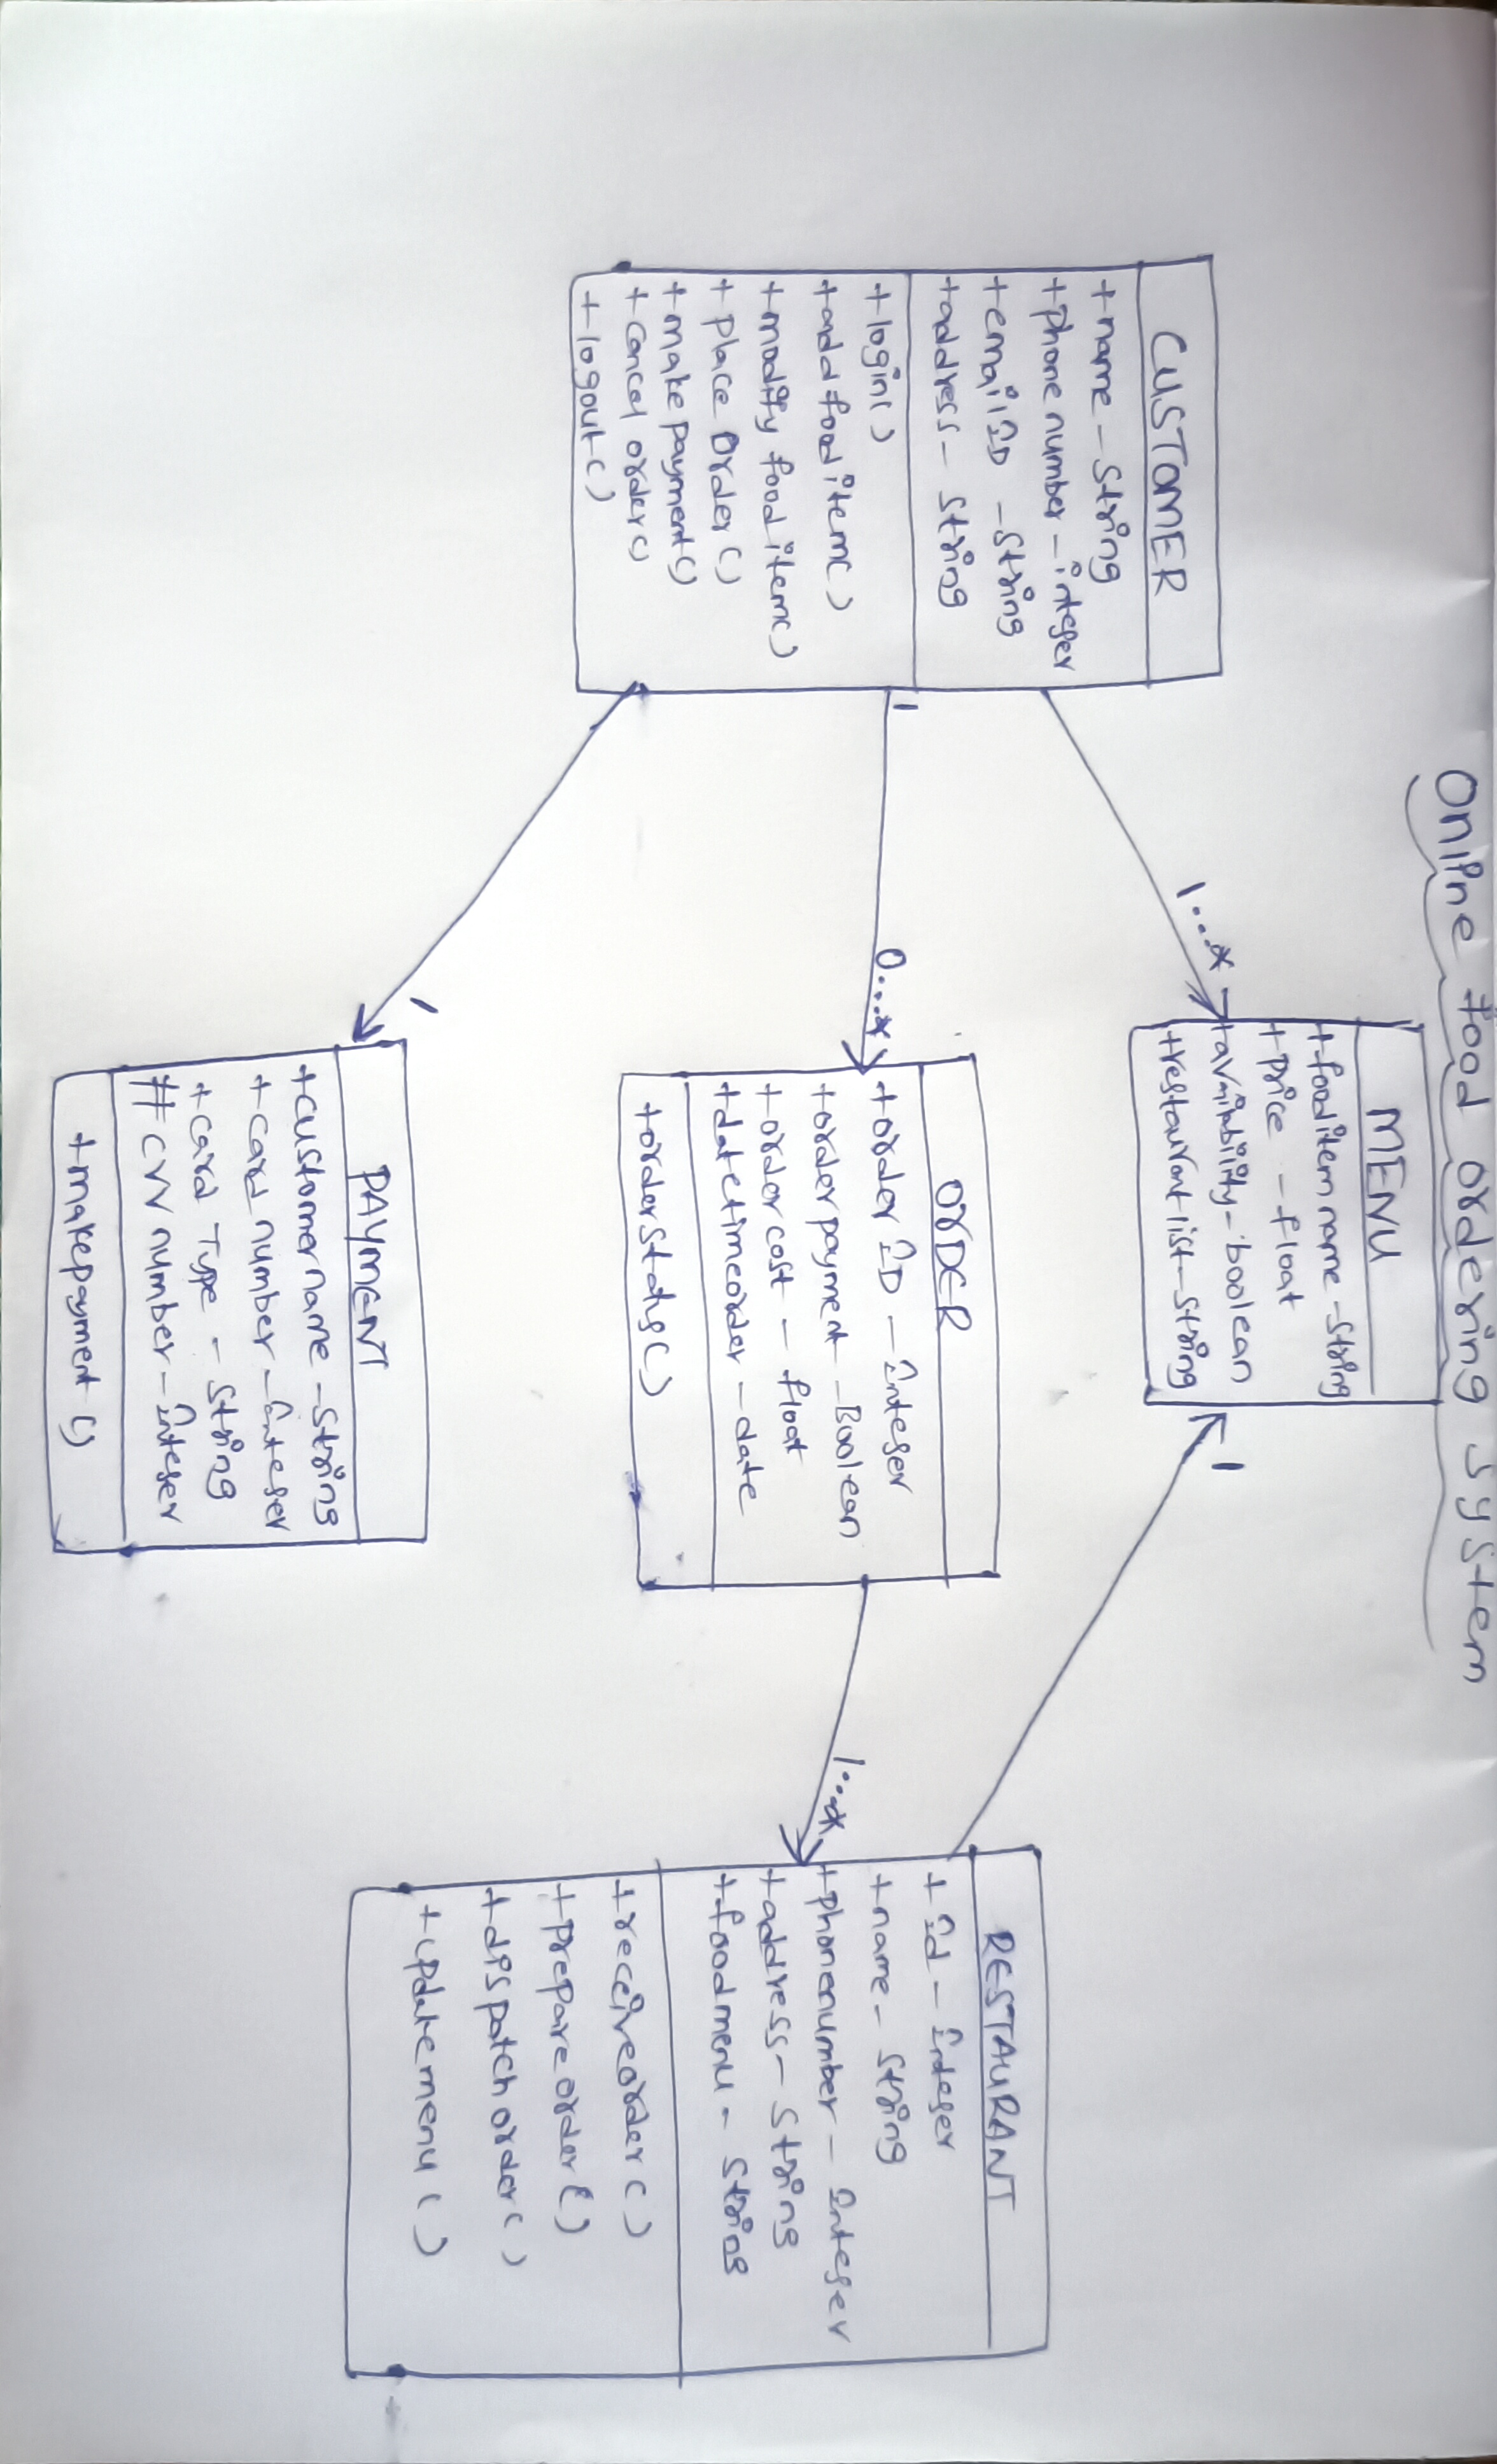 Online food ordering system
CUSTOMER
+name - string
+phone number - integer
+emailID - string
+address - string
+login()
+add food item()
+modify food item()
+place Order()
+make payment()
+cancel order()
+logout()
1...*
1
0...*
1
MENU
+food item name - string
+price - float
+avaibility - boolean
+restaurant list - string
1
ORDER
+order ID - Integer
+order payment - Boolean
+order cost - float
+datetimeorder - date
+order status()
1...*
PAYMENT
+customer name - string
+card number - integer
+card Type - string
#CVV number - integer
+makepayment()
RESTAURANT
+Id - Integer
+name - string
+phonenumber - Integer
+address - string
+foodmenu - string
+receiveorder()
+prepareorder()
+dispatchorder()
+updatemenu()